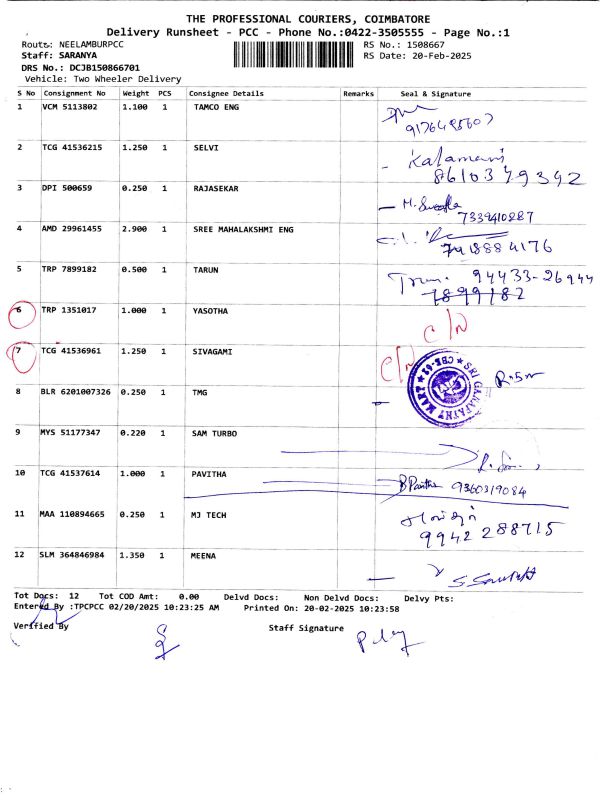 THE PROFESSIONAL COURIERS, COIMBATORE
Delivery Runsheet - PCC - Phone No.:0422-3505555 - Page No.:1
Route: NEELAMBURPCC RS No.: 1508667
Staff: SARANYA RS Date: 20-Feb-2025
DRS No.: DCJB150866701
Vehicle: Two Wheeler Delivery
S No Consignment No Weight PCS Consignee Details Remarks Seal & Signature
1 VCM 5113802 1.100 1 TAMCO ENG
2 TCG 41536215 1.250 1 SELVI
8610379392
3 DPI 500659 0.250 1 RAJASEKAR
7339410887
4 AMD 29961455 2.900 1 SREE MAHALAKSHMI ENG
5 TRP 7899182 0.500 1 TARUN 94433-26944
7899182
6 TRP 1351017 1.000 1 YASOTHA C/N
7 TCG 41536961 1.250 1 SIVAGAMI C/N
SRI GANAPATHY MART CBE-62
8 BLR 6201007326 0.250 1 TMG
9 MYS 51177347 0.220 1 SAM TURBO
10 TCG 41537614 1.000 1 PAVITHA 9360319084
11 MAA 110894665 0.250 1 MJ TECH
9942288715
12 SLM 364846984 1.350 1 MEENA
Tot Docs: 12 Tot COD Amt: 0.00 Delvd Docs: Non Delvd Docs: Delvy Pts:
Entered By :TPCPCC 02/20/2025 10:23:25 AM Printed On: 20-02-2025 10:23:58
Verified By Staff Signature